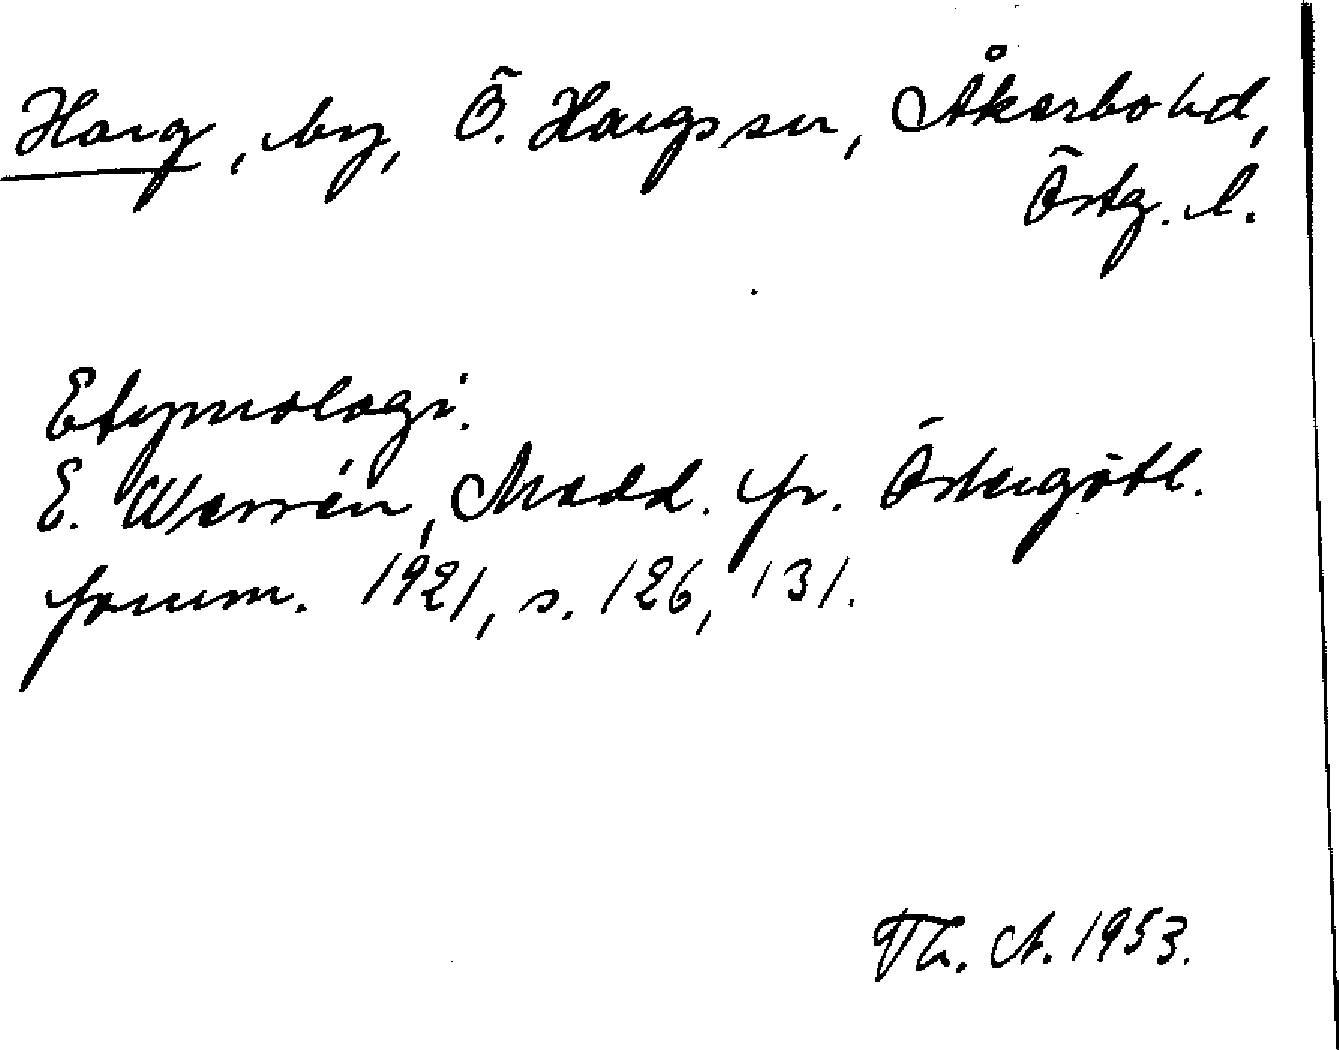 Harg, by, Ö. Hargs sn, Åkerbo hd,
Östg. l.
Etymologi.
E. Wessén, Medd. fr. Östergötl.
fornm. 1921, s. 126, 131.
Th. A. 1953.